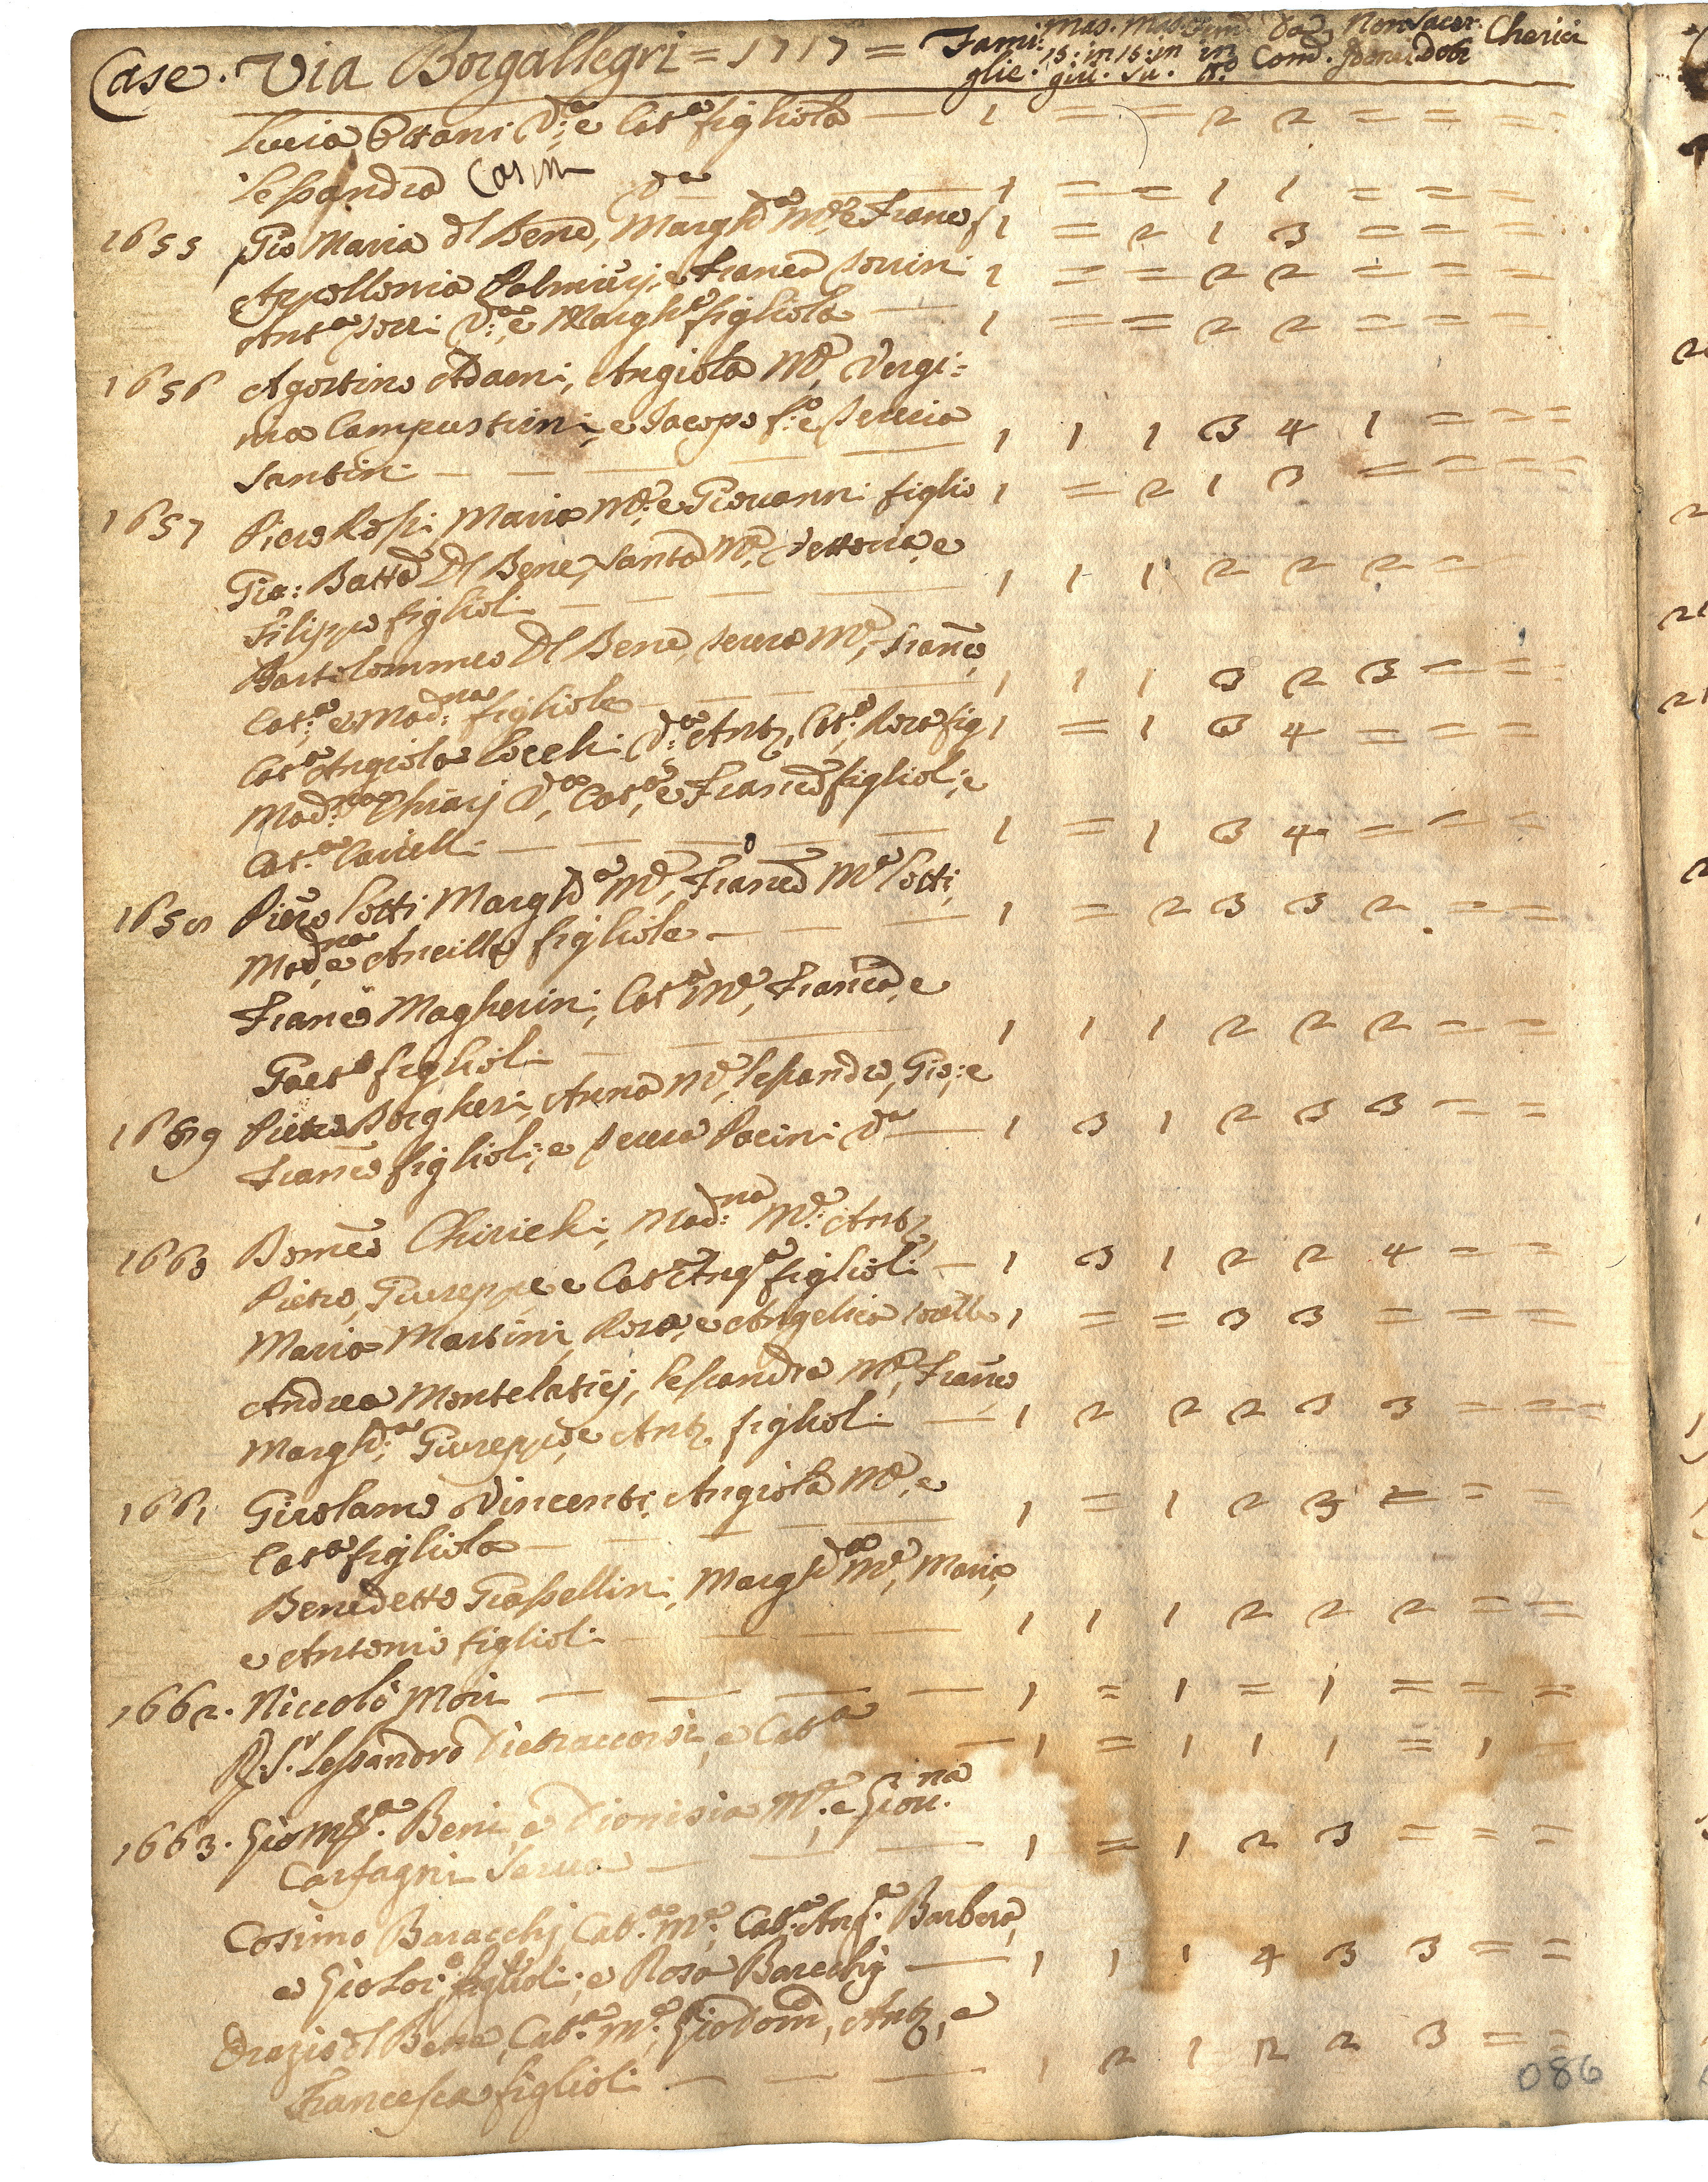 Case. Via Borgallegri = 1717 = Fami: Mas. Mas. Fem. Da Non Sacer. Cherici
glie. 15: in 15: in in Com. doti
giu. su. 
Lucia Ottani Va: e Cata figliola — 1 = = 2 2 = = =
Lessandra Casini Va 1 = = 1 1 = = =
1655 Gio Maria dl Bene, Marghta Me, e Franco f 1 = 2 1 3 = = =
Appollonia Palmieri, e Franca 1 = = 2 2 = = =
Anta Va: e Marghta figliola — 1 = = 2 2 = = =
1656 Agostino Adami, Angiola Me, Vergi=
nia Campustrini, e Jacopo fo: e Lucia
Santini — — — 1 1 1 3 4 1 = = =
1657 Piero Rossi Maria Me: e Giovanni figlio 1 = 2 1 3 = = = =
Gio: Batta Dl Bene, Santa Me, Vettoria, e
Filippo figlioli — — — 1 1 1 2 2 2 = =
Bartolommeo Dl Bene, Me, Franco,
Cata: e Madna: figliole — — — 1 1 1 3 2 3 = =
Cata Angiola Cocchi Va: Anto, Cata, Rosa fig 1 = 1 3 4 = = =
Madna: Chiarj Va, Cata, e Franco figlioli; e
Cata — — — 1 = 1 3 4 = = =
1658 Piero Cotti Marghta Me, Franca Ma Cotti,
Madna, e Ancilla figliole — — — 1 = 2 3 3 2 = =
Franco Magherini, Cata Me, Franca, e
Gaeto figlioli — — — 1 1 1 2 2 2 = =
1659 Pietro Borgheri, Anna Me, Lessandro, Gio: e
Franco figlioli; e Pacini Va — 1 3 1 2 3 3 = =
1660 Domco Chirichi, Madna: Me: Anto,
Pietro, Giuseppe, e Cata Anga figlioli — 1 3 1 2 2 4 = =
Maria Martini, Rosa, e Angelica sorelle 1 = = 3 3 = = =
Andrea Montelatici, Lessandra Me, Franco
Marghta: Giuseppe, e Anto figlioli — 1 2 2 2 3 3 = = =
1661 Girolamo Vincenti, Angiola Me, e
Cata figliola — — — 1 = 1 2 3 = = =
Benedetto Grassellini, Marghta Me, Maria,
e Antonio figlioli — — — 1 1 1 2 2 2 = =
1662. Niccolò Mori — — — — 1 = 1 = 1 = = =
R. Sr. Lessandro Pietraccordi, e Cata — 1 = 1 1 1 = 1 —
1663. Gio Beni, e Dionisia Me. e Giou.na
Carfagni Serua — — — 1 = 1 2 3 = = =
Cosimo Baracchj Cata. Me: Cata: Anga. Barbera,
e Gio figlioli; e Rosa Baracchj — 1 1 1 4 3 3 = =
Orazio dl Bene, Cata. Me. Gio Domco, Anto, e
Francesca figlioli — — — 1 2 1 2 2 3 = =
086